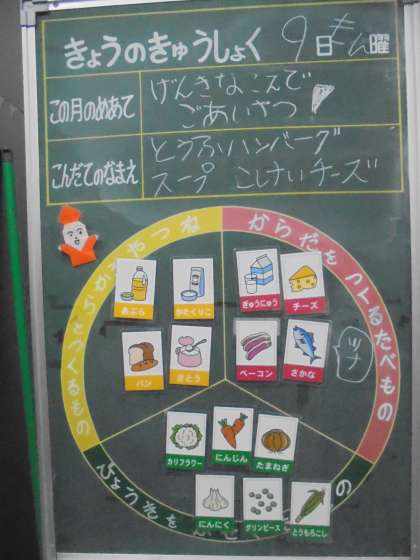 きょうのきゅうしょく 9日 もく曜
この月のめあて
げんきなこえで
ごあいさつ
こんだてのなまえ
とうふハンバーグ
スープ こしけいチーズ
ねつやちからをつくるもの
からだをつくるたべもの
あぶら
かたくりこ
ぎゅうにゅう
チーズ
パン
さとう
ベーコン
さかな
ツナ
カリフラワー
にんじん
たまねぎ
にんにく
グリンピース
とうもろこし